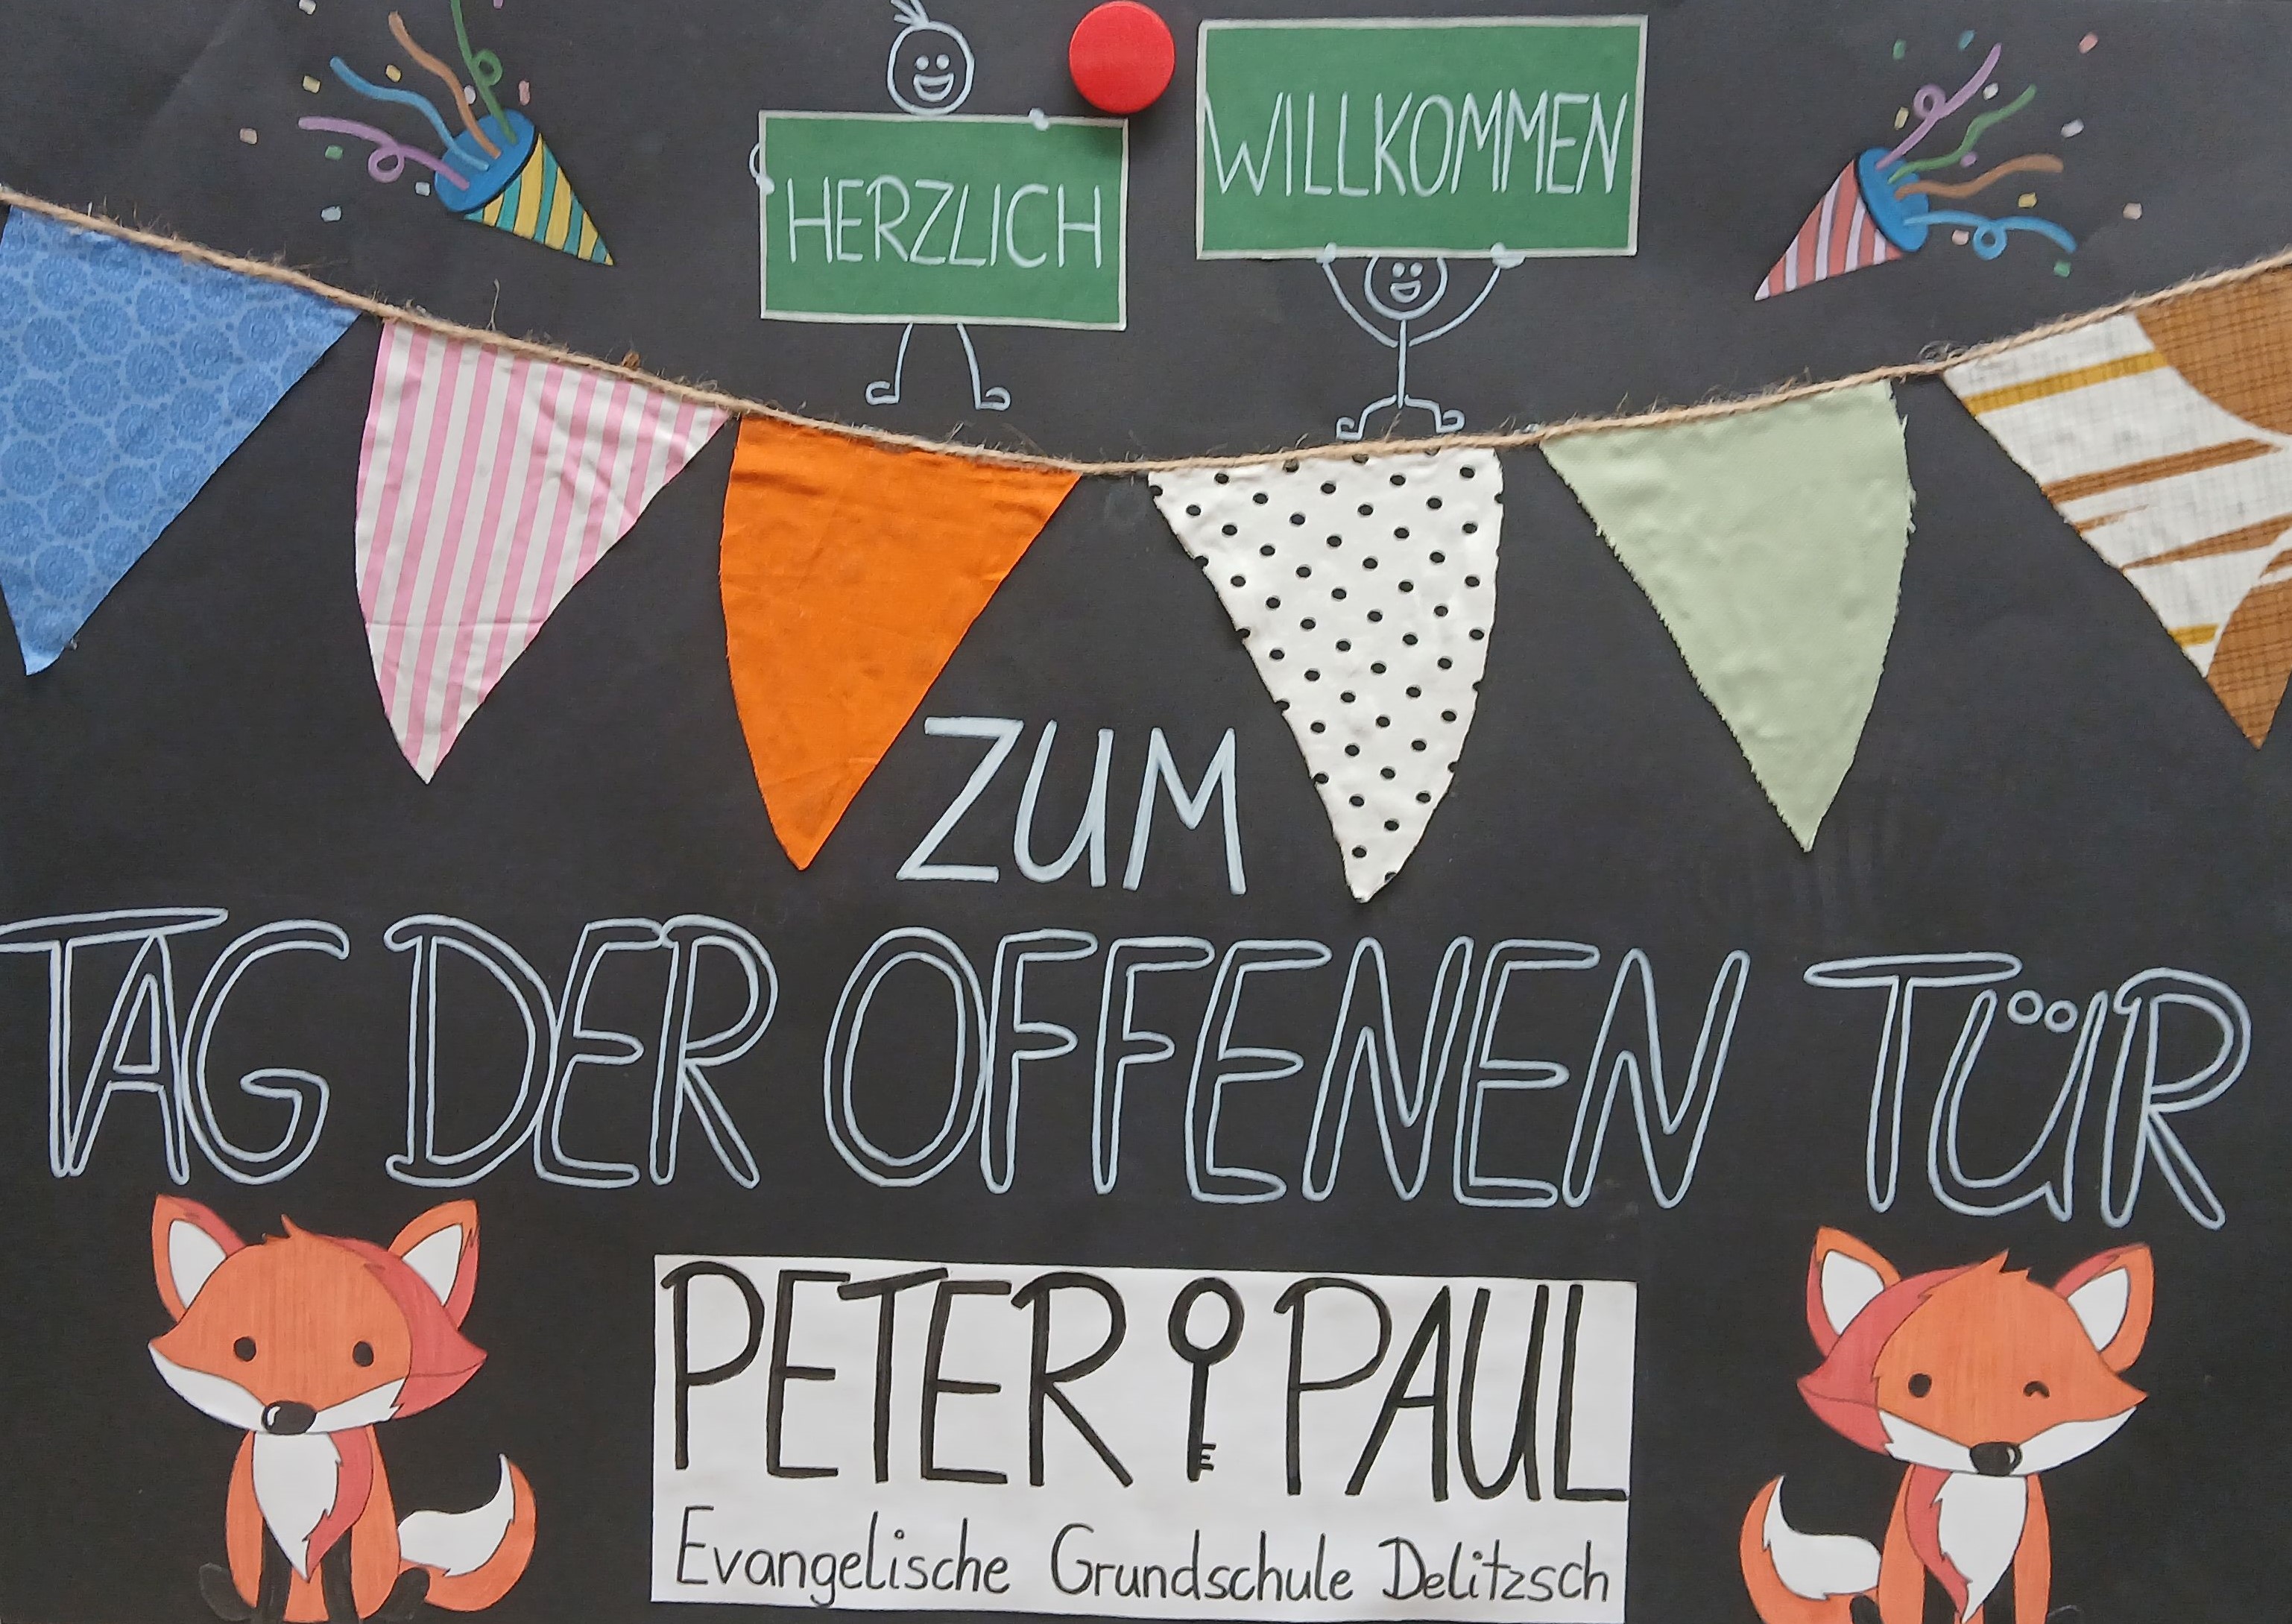 HERZLICH
WILLKOMMEN
ZUM
TAG DER OFFENEN TÜR
PETER PAUL
Evangelische Grundschule Delitzsch